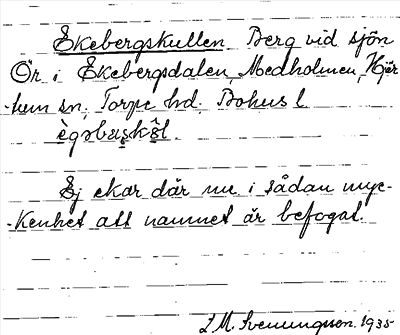 Ekebergskullen Berg vid sjön
Ör i Ekebergsdalen, Medholmen, Hjär-
hem sn, Torpe hd. Bohus l
Ej ekar där nu i sådan myc-
-kenhet att namnet är befogat.
L M. Svenungsson. 1935